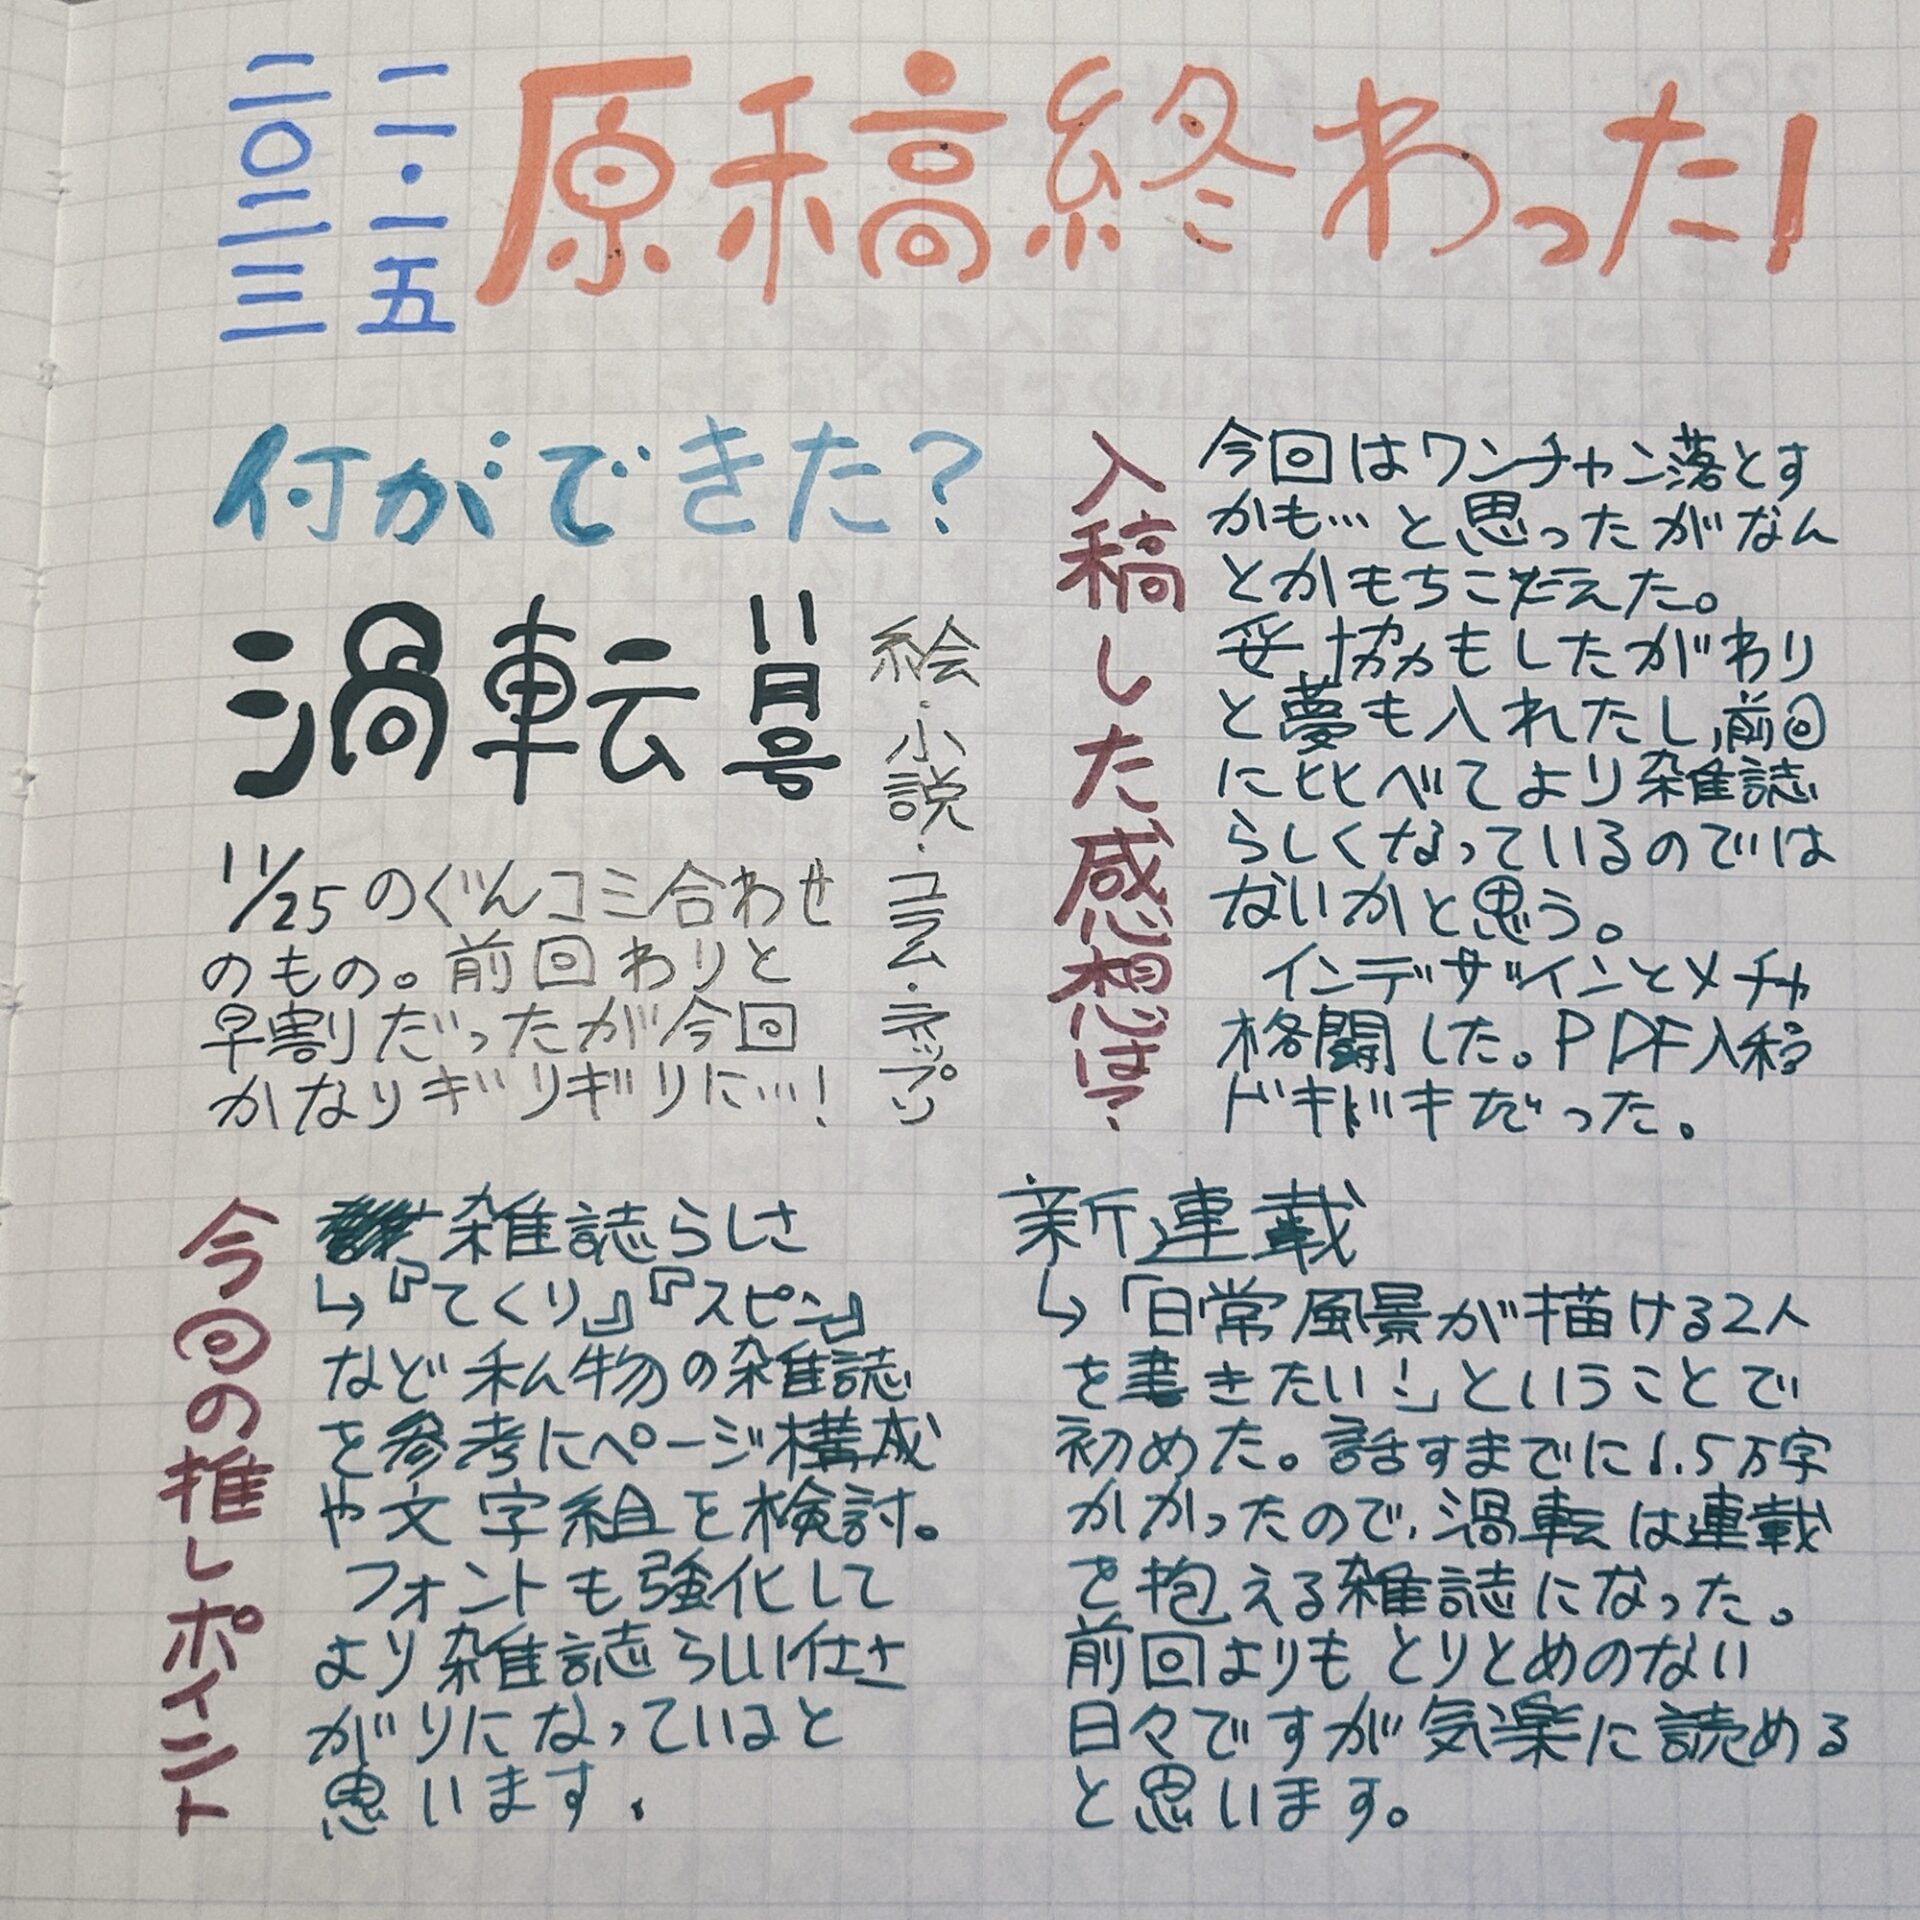 二〇二三
一一・一五
原稿終わった!
何ができた?
渦転 11月号
絵・小説・コラム・ネップリ
11/25のぐんコミ合わせ
のもの。前回わりと
早割だったが今回
かなりギリギリに…!
入稿した感想は?
今回はワンチャン落とす
かも…と思ったがなん
とかもちこたえた。
妥協もしたがわり
と夢も入れたし、前回
に比べてより雑誌
らしくなっているのでは
ないかと思う。
インデザインとメチャ
格闘した。PDF入稿
ドキドキだった。
今回の推しポイント
雑誌らしさ
↳『てくり』『スピン』
など私物の雑誌
を参考にページ構成
や文字組を検討。
フォントも強化して
より雑誌らしい仕さ
がりになっていると
思います.
新連載
↳「日常風景が描ける2人
を書きたい!」ということで
初めた。話すまでに1.5万字
かかったので、渦転は連載
を抱える雑誌になった。
前回よりもとりとめのない
日々ですが気楽に読める
と思います。